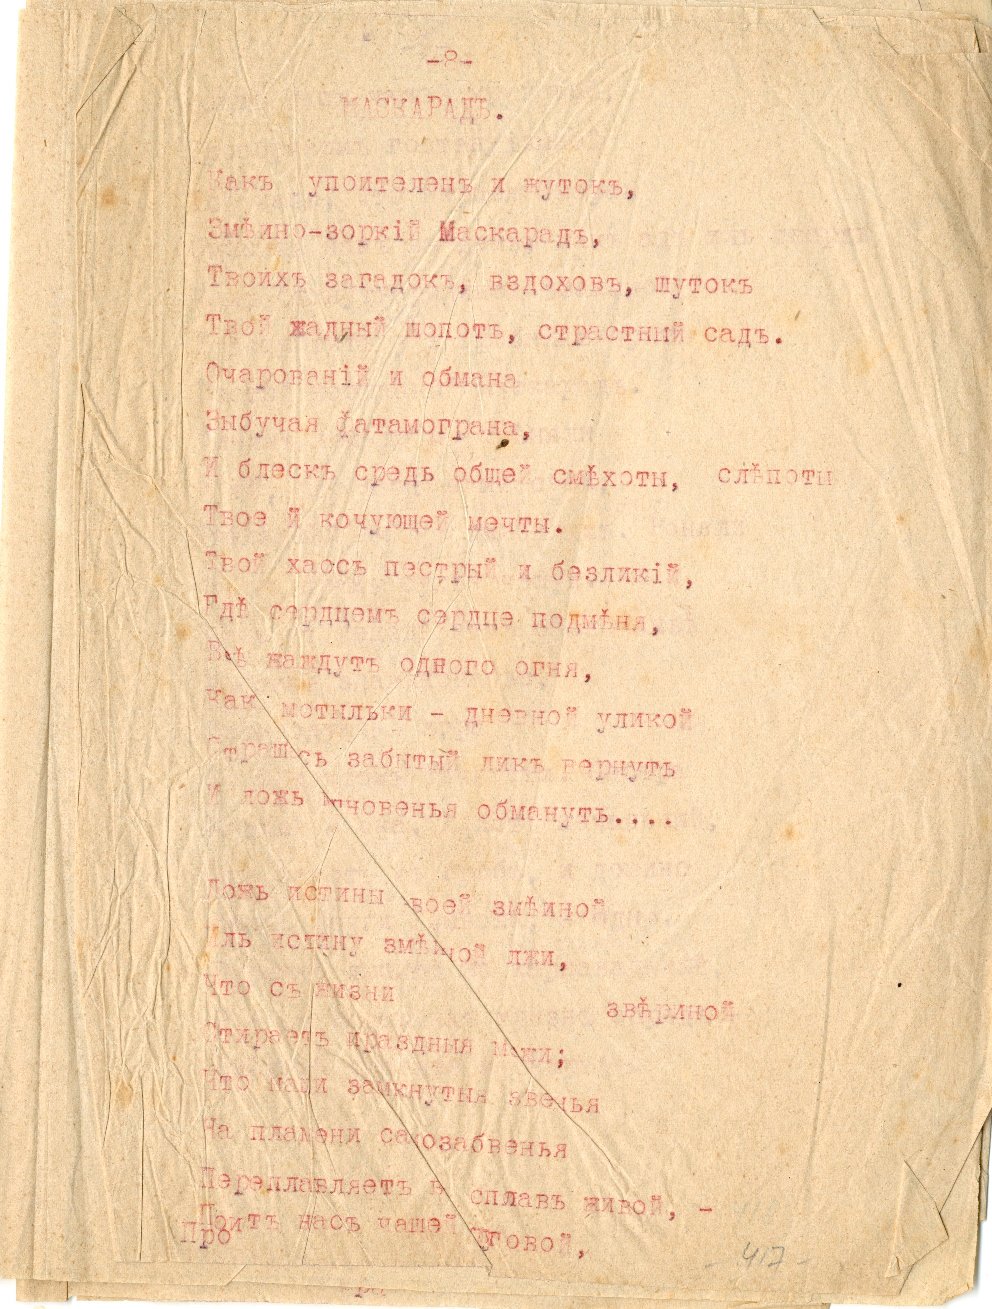 -8-
МАСКАРАДЪ.
Какъ упоителенъ и жутокъ,
Змѣино-зоркій Маскарадъ,
Твоихъ загадокъ, вздоховъ, шутокъ
Твой жадный шопотъ, страстный садъ.
Очарованій и обмана
Зыбучая фатамограна,
И блескъ средь общей смѣхоты, слѣпоты
Твое й кочующей мечты.
Твой хаосъ пестрый и безликій,
Гдѣ сердцемъ сердце подмѣня,
Всѣ жаждутъ одного огня,
Какъ мотыльки - дневной уликой
Страшась забытый ликъ вернуть
И ложь мгновенья обмануть....
Ложь истины твоей змѣиной
Иль истину змѣиной лжи,
Что съ жизни звѣриной
Стираетъ праздныя межи;
Что наши замкнутыя звенья
На пламени самозабвенья
Переплавляетъ въ сплавъ живой, -
Поитъ насъ чашей
Про
- 417 -